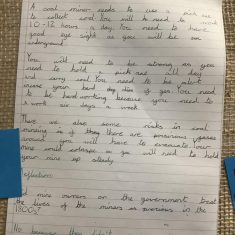 A coal miner needs to use a pick axe
to collect coal. You will to need to work
10-12 hours a day. You need to have
good eye sight as you will be on
underground.
You will need to be strong as you
need to hold a pick axe will dig
and carry coal. You need to be alert
incase your herd dog dies of gas. You need
to be hard working because you need to
work six days a week.
There are also some risks in coal
mining is if they there are poisonous gasses
around you will have to evacuate. Your
mine could collapse so you will need to hold
your mine up steady.
Reflection:
mine owners on the government treat
the lives of the miners as precious in the
1800s?
No because they didn't